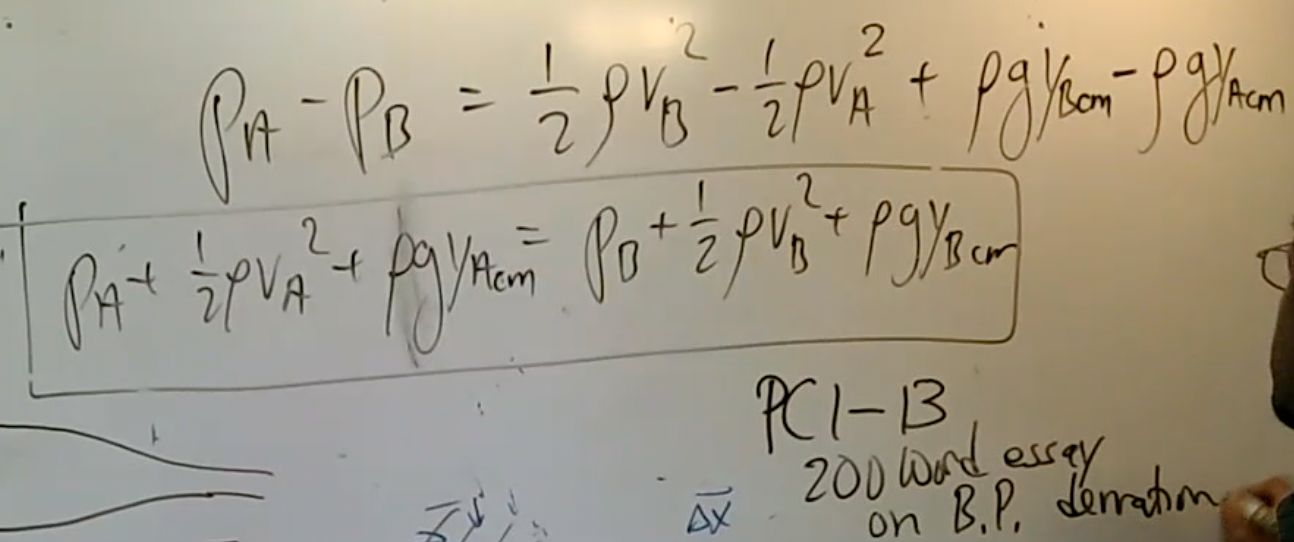 P_A - P_B = \frac{1}{2} ρv_B^2 - \frac{1}{2} ρv_A^2 + ρgy_{Bcm} - ρgy_{Acm}
P_A + \frac{1}{2} ρv_A^2 + ρgy_{Acm} = P_B + \frac{1}{2} ρv_B^2 + ρgy_{Bcm}
PC1-13
200 word essay
on B.P. derivation
\overline{Δx}